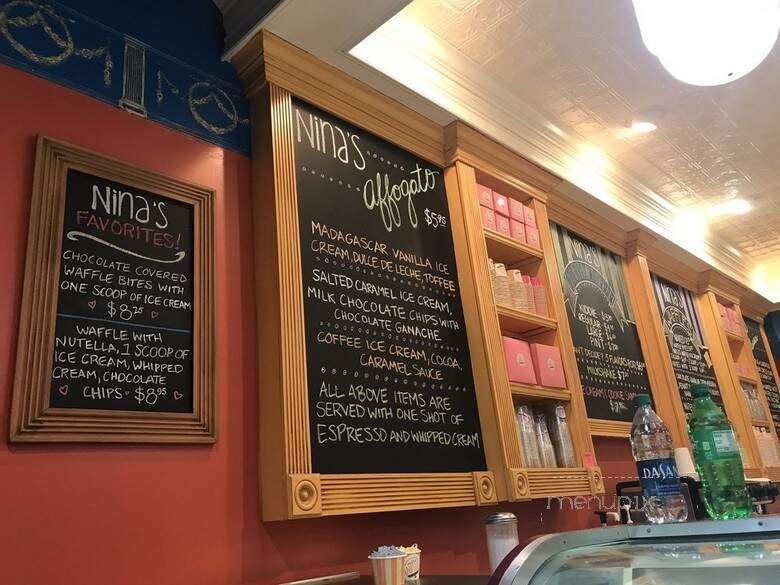 Nina's
FAVORITES!
CHOCOLATE COVERED
WAFFLE BITES WITH
ONE SCOOP OF ICE CREAM
$8.25
WAFFLE WITH
NUTELLA, 1 SCOOP OF
ICE CREAM, WHIPPED
CREAM, CHOCOLATE
CHIPS • $8.95
Nina's
affogato
$5.95
MADAGASCAR VANILLA ICE
CREAM, DULCE DE LECHE, TOFFEE
SALTED CARAMEL ICE CREAM,
MILK CHOCOLATE CHIPS WITH
CHOCOLATE GANACHE
COFFEE ICE CREAM, COCOA,
CARAMEL SAUCE
ALL ABOVE ITEMS ARE
SERVED WITH ONE SHOT OF
ESPRESSO AND WHIPPED CREAM
Nina's
KIDDIE
REGULAR
LARGE
PINT
MILKSHAKE
Nina's
DASANI
menupix